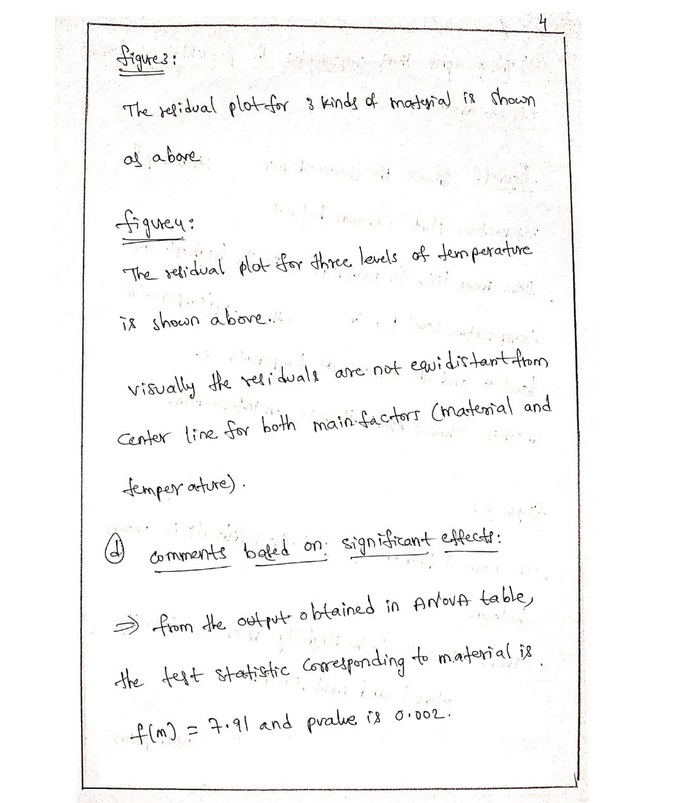 4
figure3:
The residual plot for 3 kinds of material is shown
as above.
figure4:
The residual plot for three levels of temperature
is shown above.
visually the residuals are not equidistant from
center line for both main factors (material and
temperature).
d comments based on significant effects:
⇒ from the output obtained in ANOVA table,
the test statistic corresponding to material is
f(m) = 7.91 and pvalue is 0.002.